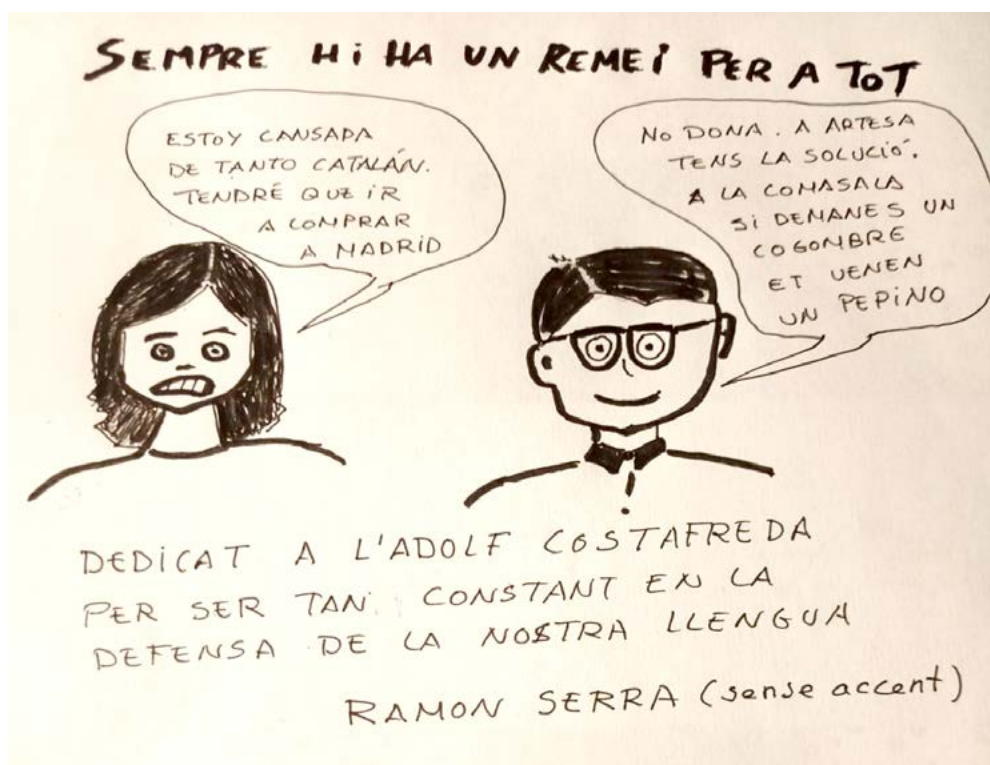 SEMPRE HI HA UN REMEI PER A TOT
ESTOY CANSADA
DE TANTO CATALÁN.
TENDRÉ QUE IR
A COMPRAR
A MADRID
NO DONA. A ARTESA
TENS LA SOLUCIÓ.
A LA COMASALA
SI DEMANES UN
COGOMBRE
ET VENEN
UN PEPINO
DEDICAT A L'ADOLF COSTAFREDA
PER SER TAN CONSTANT EN LA
DEFENSA DE LA NOSTRA LLENGUA
RAMON SERRA (sense accent)